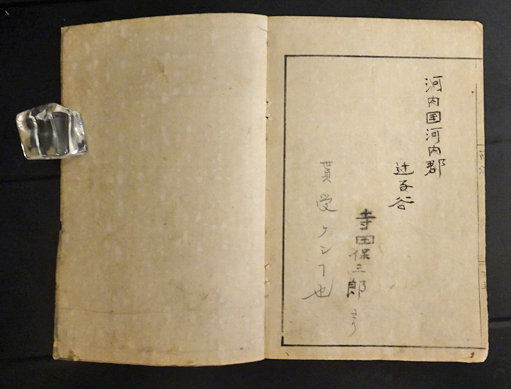 河内国河内郡
辻子谷
寺田保三郎より
貰受クシヿ也